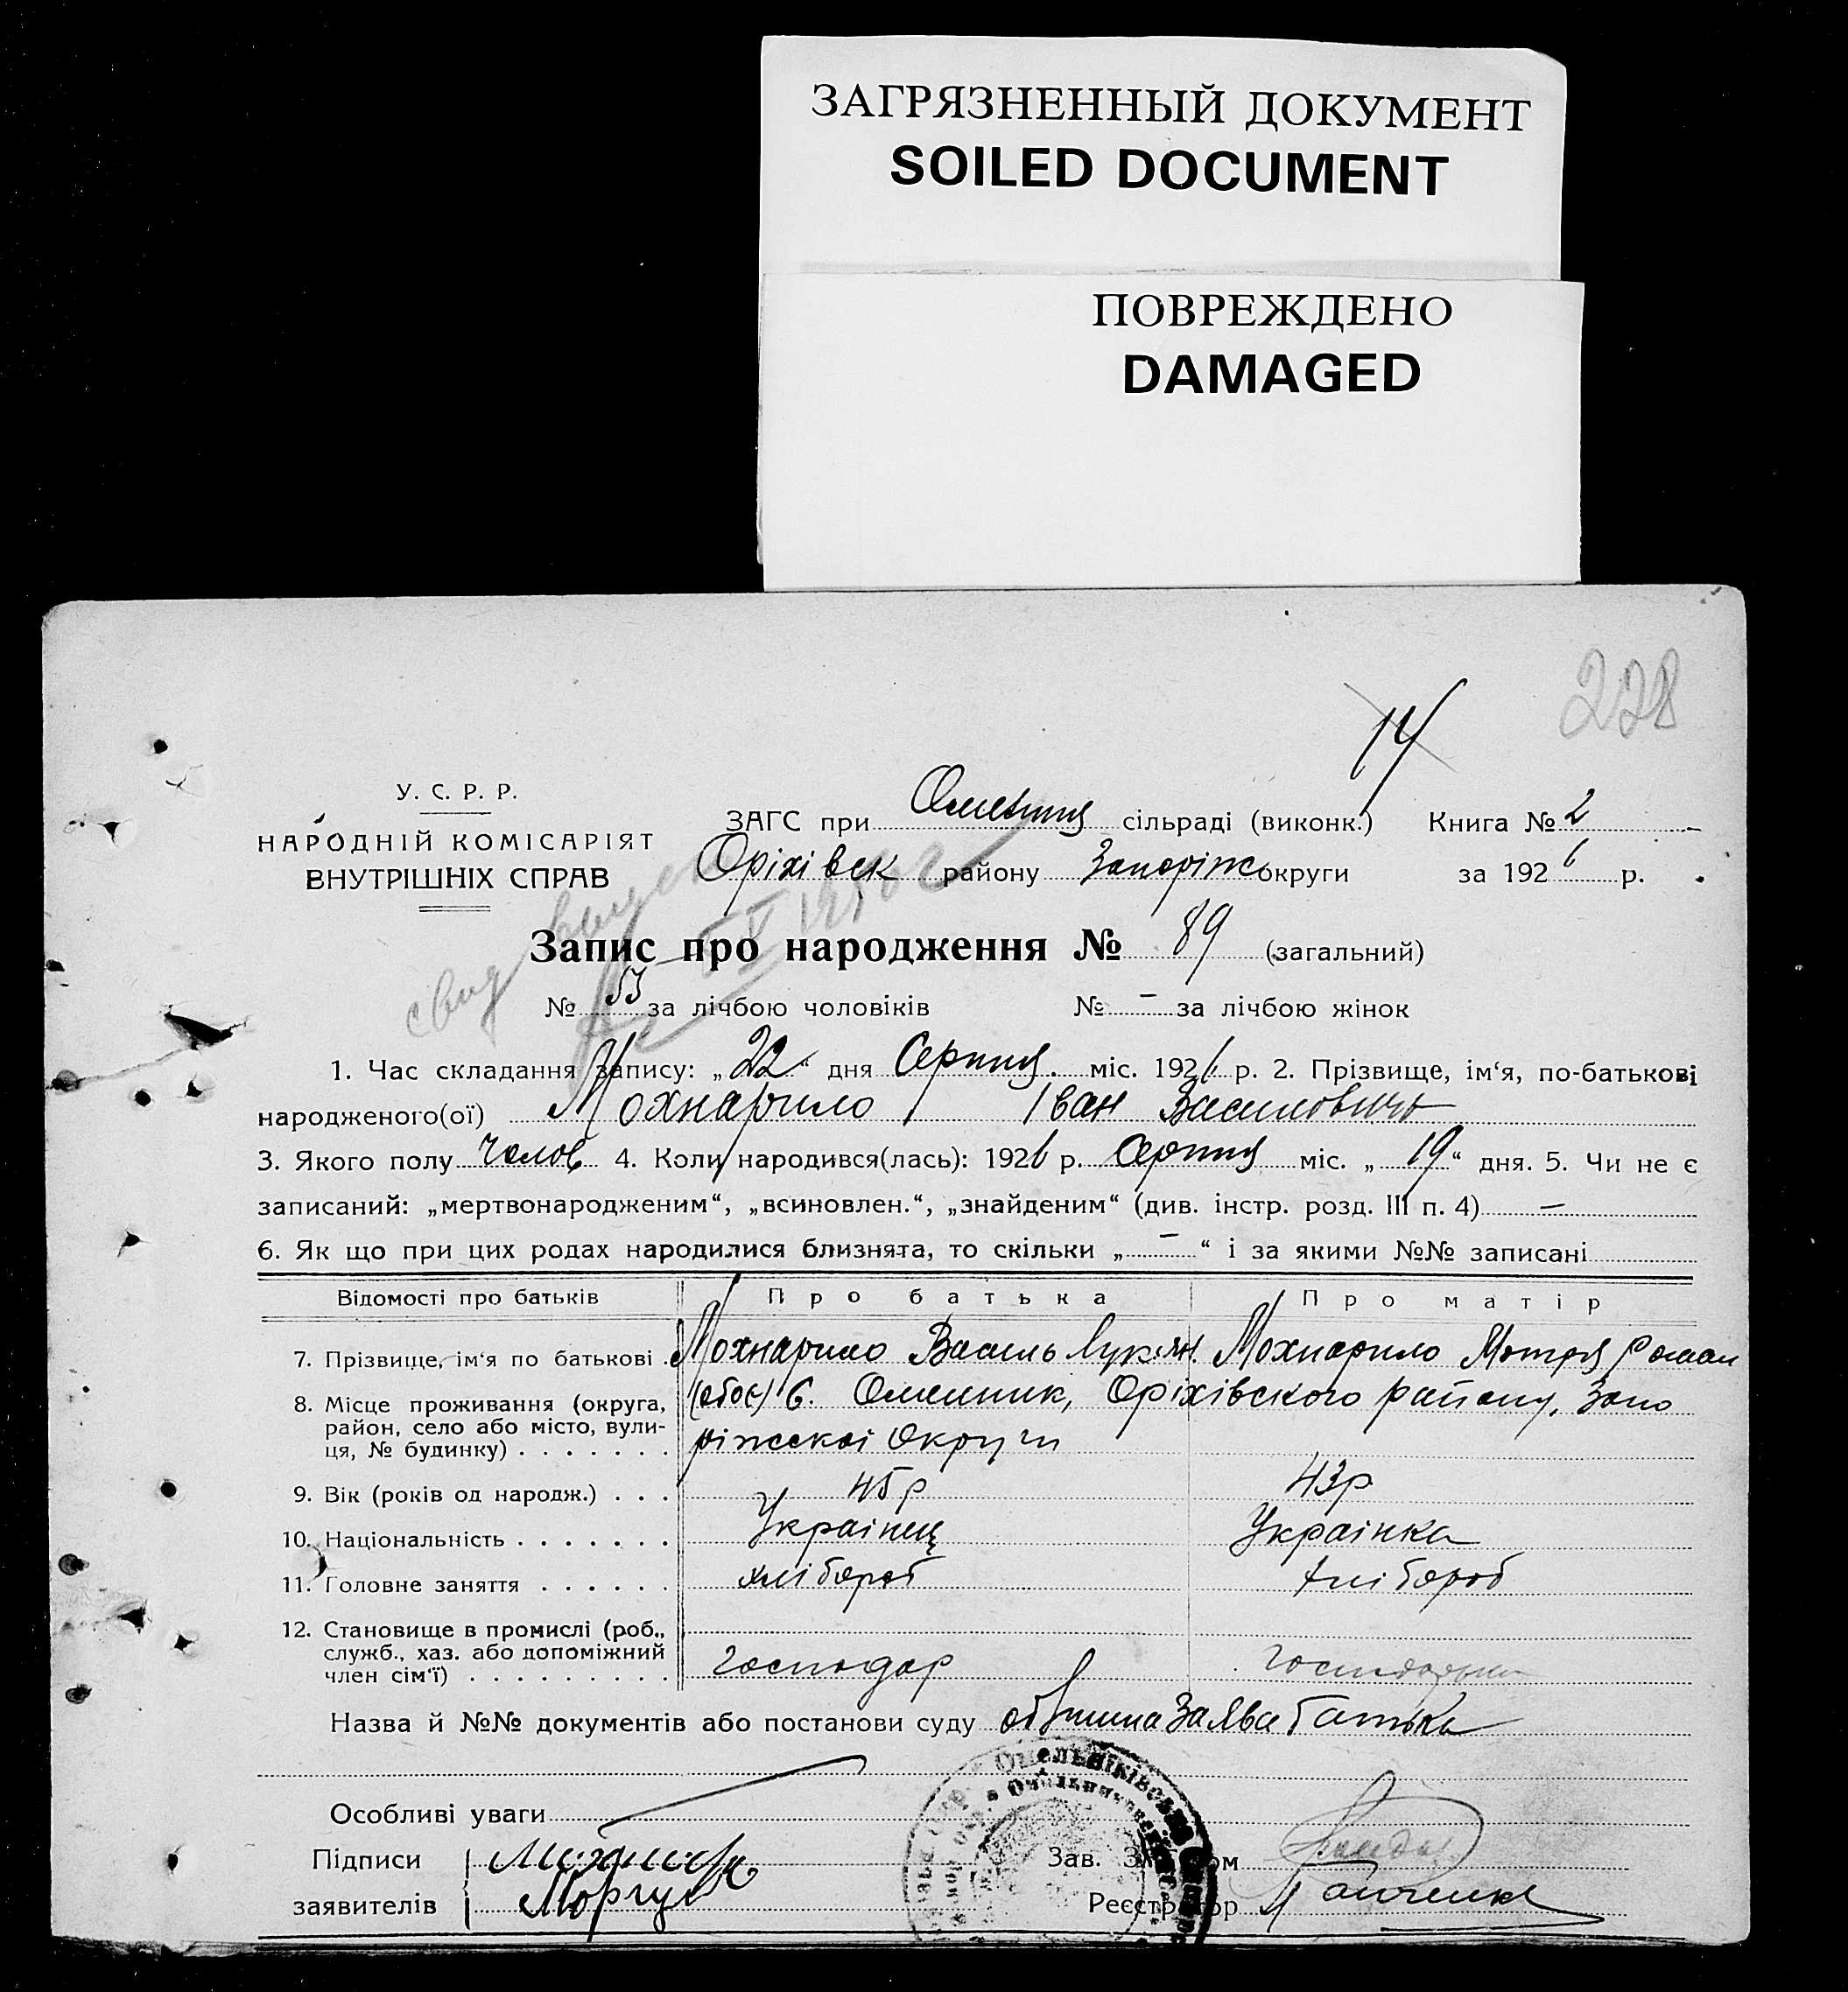 ЗАГРЯЗНЕННЫЙ ДОКУМЕНТ
SOILED DOCUMENT
ПОВРЕЖДЕНО
DAMAGED
228
14
У. С. Р. Р.
НАРОДНІЙ КОМІСАРІЯТ
ВНУТРІШНІХ СПРАВ
ЗАГС при сільраді (виконк.) Книга № 2
Оріхівск району Запоріж округи за 1926 р.
Запис про народження № 89 (загальний)
№ 53 за лічбою чоловіків № – за лічбою жінок
1. Час складання запису: „22“ дня Серпня міс. 1926 р. 2. Прізвище, ім‘я, по-батькові
народженого(ої) Мохнарило Іван Василовичь
3. Якого полу Чолов 4. Коли народився(лась): 1926 р. Серпня міс. „19“ дня. 5. Чи не є
записаний: „мертвонародженим“, „всиновлен.“, „знайденим“ (див. інстр. розд. III п. 4) —
6. Як що при цих родах народилися близнята, то скільки „–“ і за якими №№ записані
Відомості про батьків Про батька Про матір
7. Прізвище, ім‘я по батькові Мохнарило Василь Лукян. Мохнарило Мотря Роман
8. Місце проживання (округа, район, село або місто, вулиця, № будинку) (обоє) С. Омельник, Оріхівского району, Запо
ріжскоі Округи
9. Вік (років од народж.) . . . 45 р 43 р
10. Національність . . . . . . . Украінец Украінка
11. Головне заняття . . . . . . хлібороб хлібороб
12. Становище в промислі (роб.,
служб., хаз. або допоміжний
член сім‘ї) . . . . . . . . . господар
Назва й №№ документів або постанови суду Заява батька
Особливі уваги
Підписи
заявителів Моргун
Зав. ЗАГСом
Реєстратор